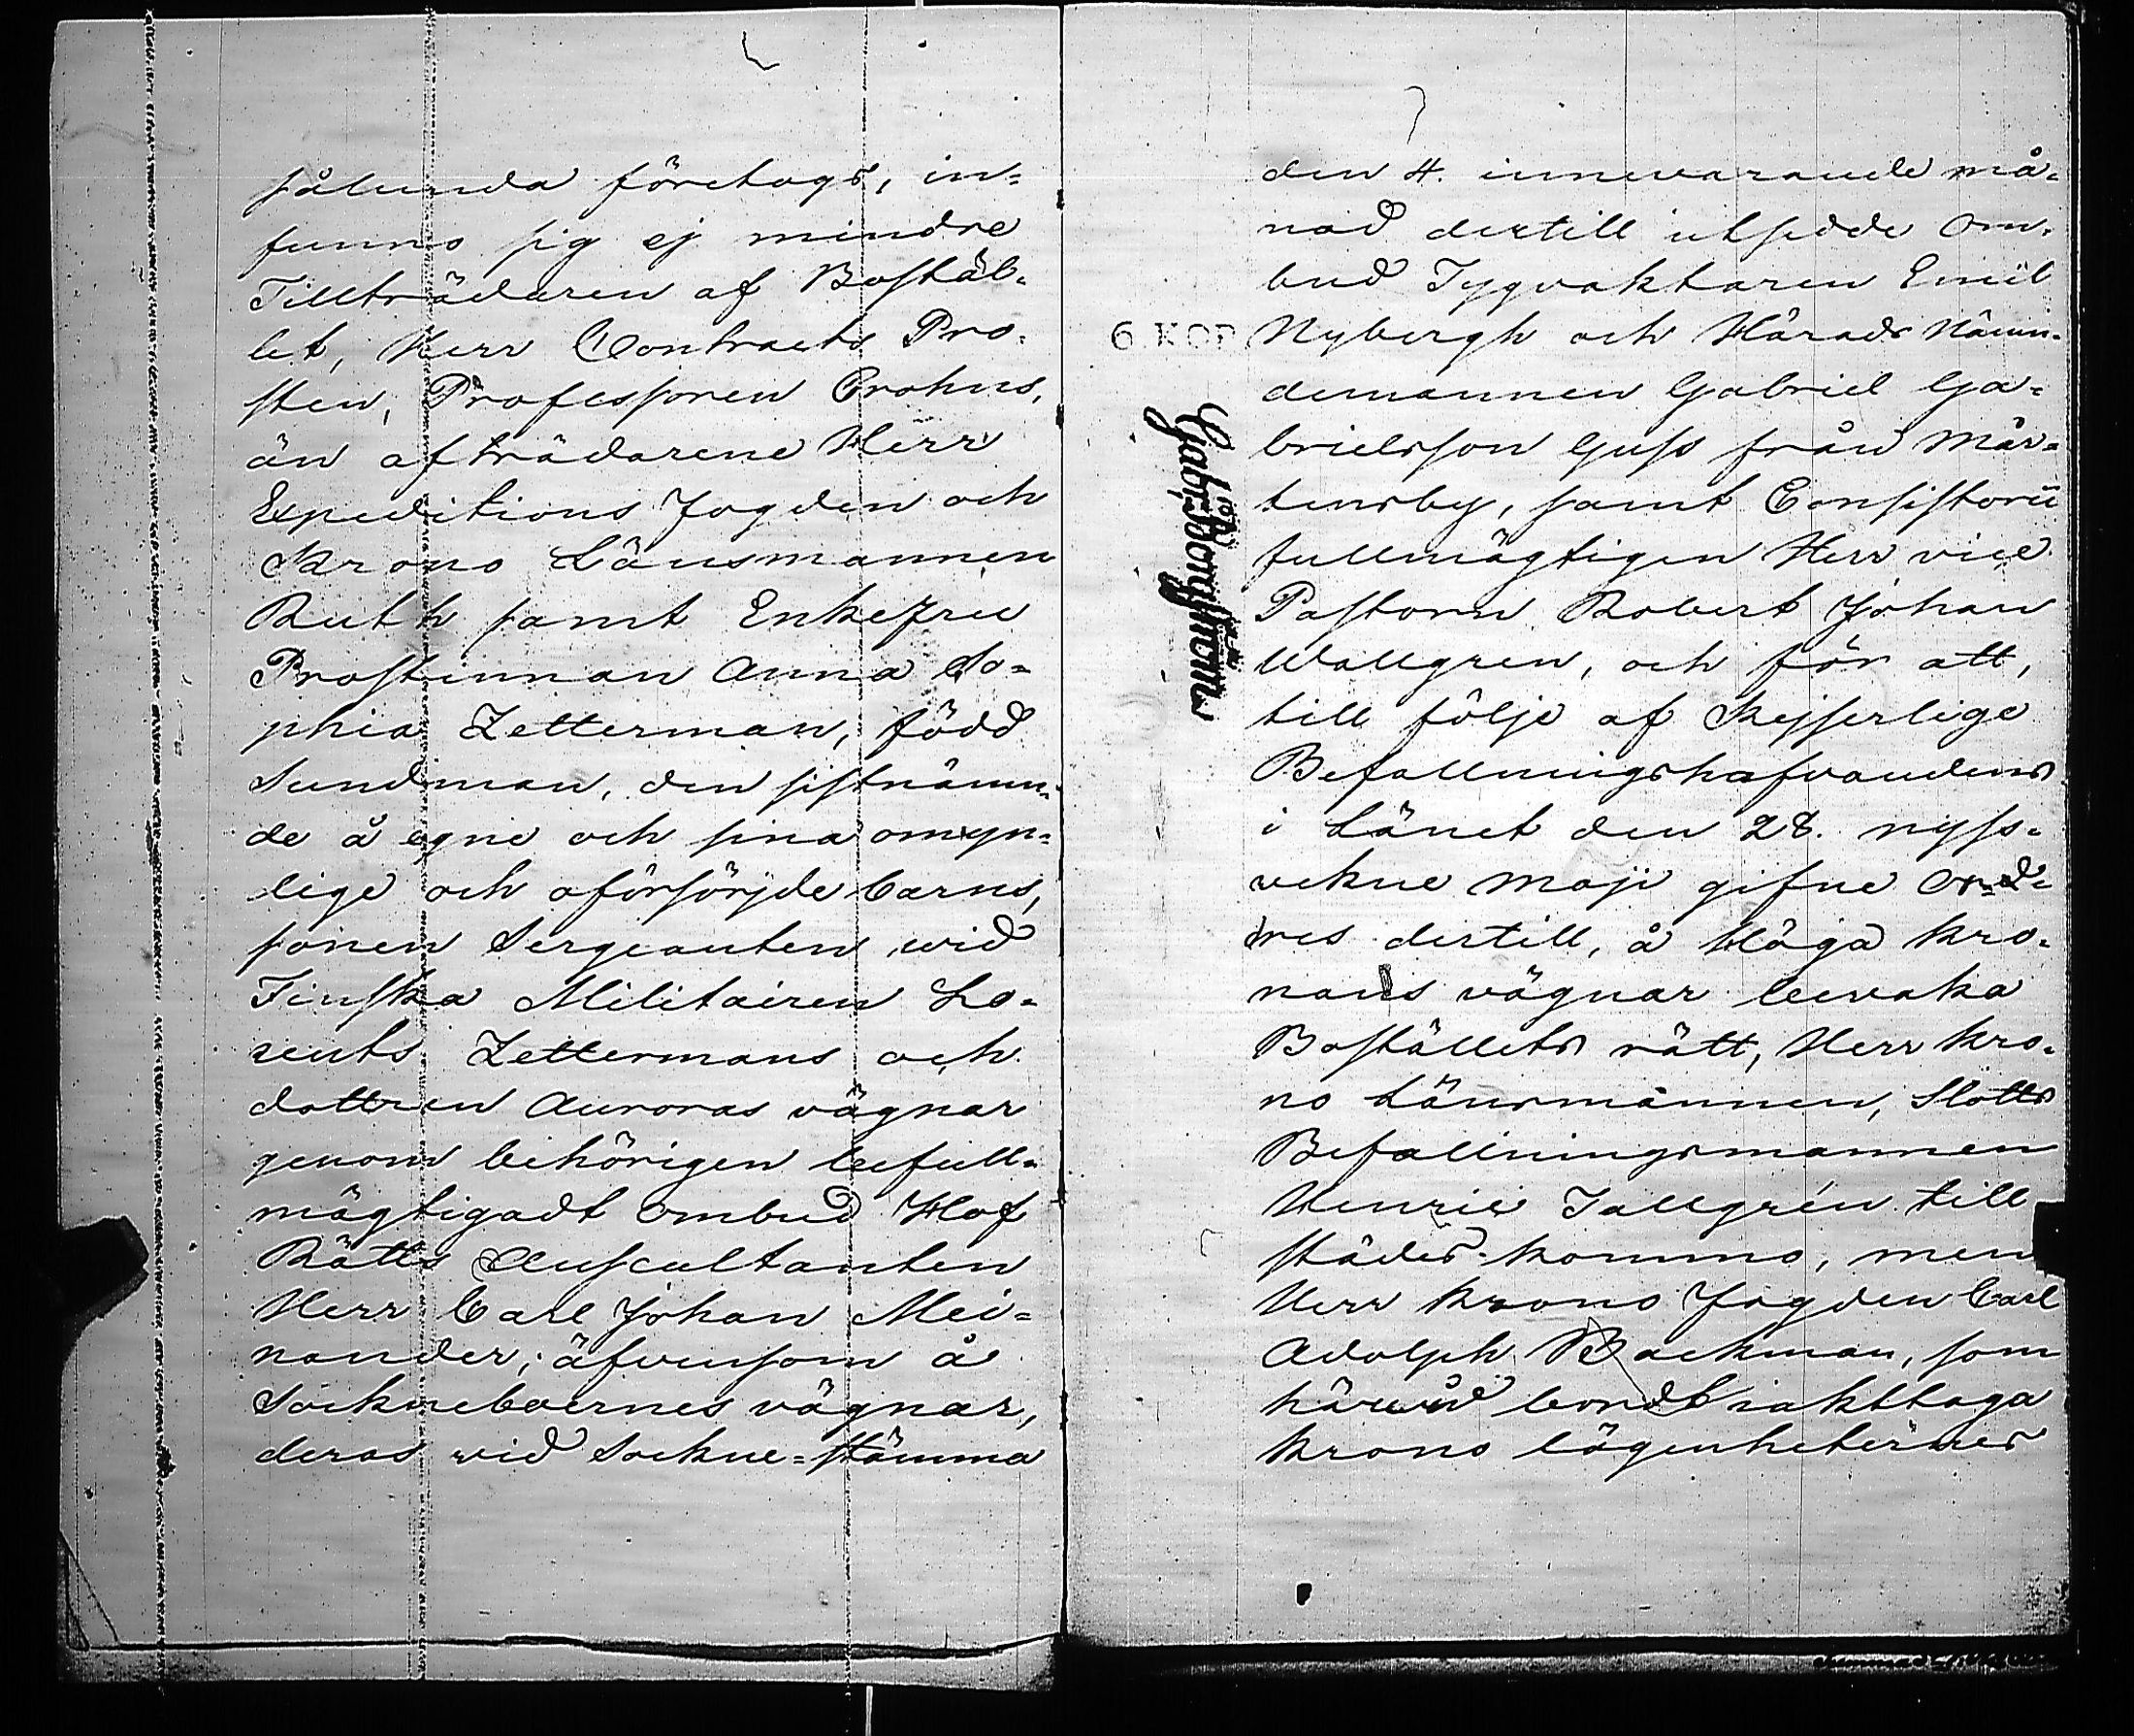 sålunda företogs, in-
funno sig ej mindre
Tillträdaren af Bostäl-
let, Herr Contracts Pro-
sten, Professoren Crohns,
än afträdarene Herr
Expeditions Fogden och
Krono Länsmannen
Ruth samt Enkefru
Prostinnan Anna So-
phia Zetterman, född
Sundman, den sistnämn-
de å egne och sina omyn-
lige och oförsörjde barns,
sonen Sergeanten wid
Finska Militairen Lo-
rents Zettermans och
dottren Auroras vägnar
genom behörigen befull-
mägtigadt ombud Hof
Rätts Auscultanten
Herr Carl Johan Mei-
nander; äfvensom å
Sockneboernes vägnar,
deras vid Sockne-stämma
den 4. innevarande må-
nad dertill utsedde Om-
bud Tygvaktaren Emil
6 KOP
Nybergh och Härads Näm-
demannen Gabriel Ga-
brielsson Guss från Mår-
tensby, samt Consistorii
fullmägtigen Herr vice
Pastorn Robert Johan
Wallgren, och för att,
till följe af Kejserlige
Befallningshafvandens
i Länet den 28. nyss-
vekne Maji gifne Ord-
res dertill, å Höga Kro-
nans vägnar bevaka
Boställets rätt, Herr Kro-
no Länsmannen, Slotts
Befallningsmannen
Henric Tallgrén till
städes kommo, men
Herr Krono Fogden Carl
Adolph Backman, som
härvid bondt iakttaga
Krono lägenheternes